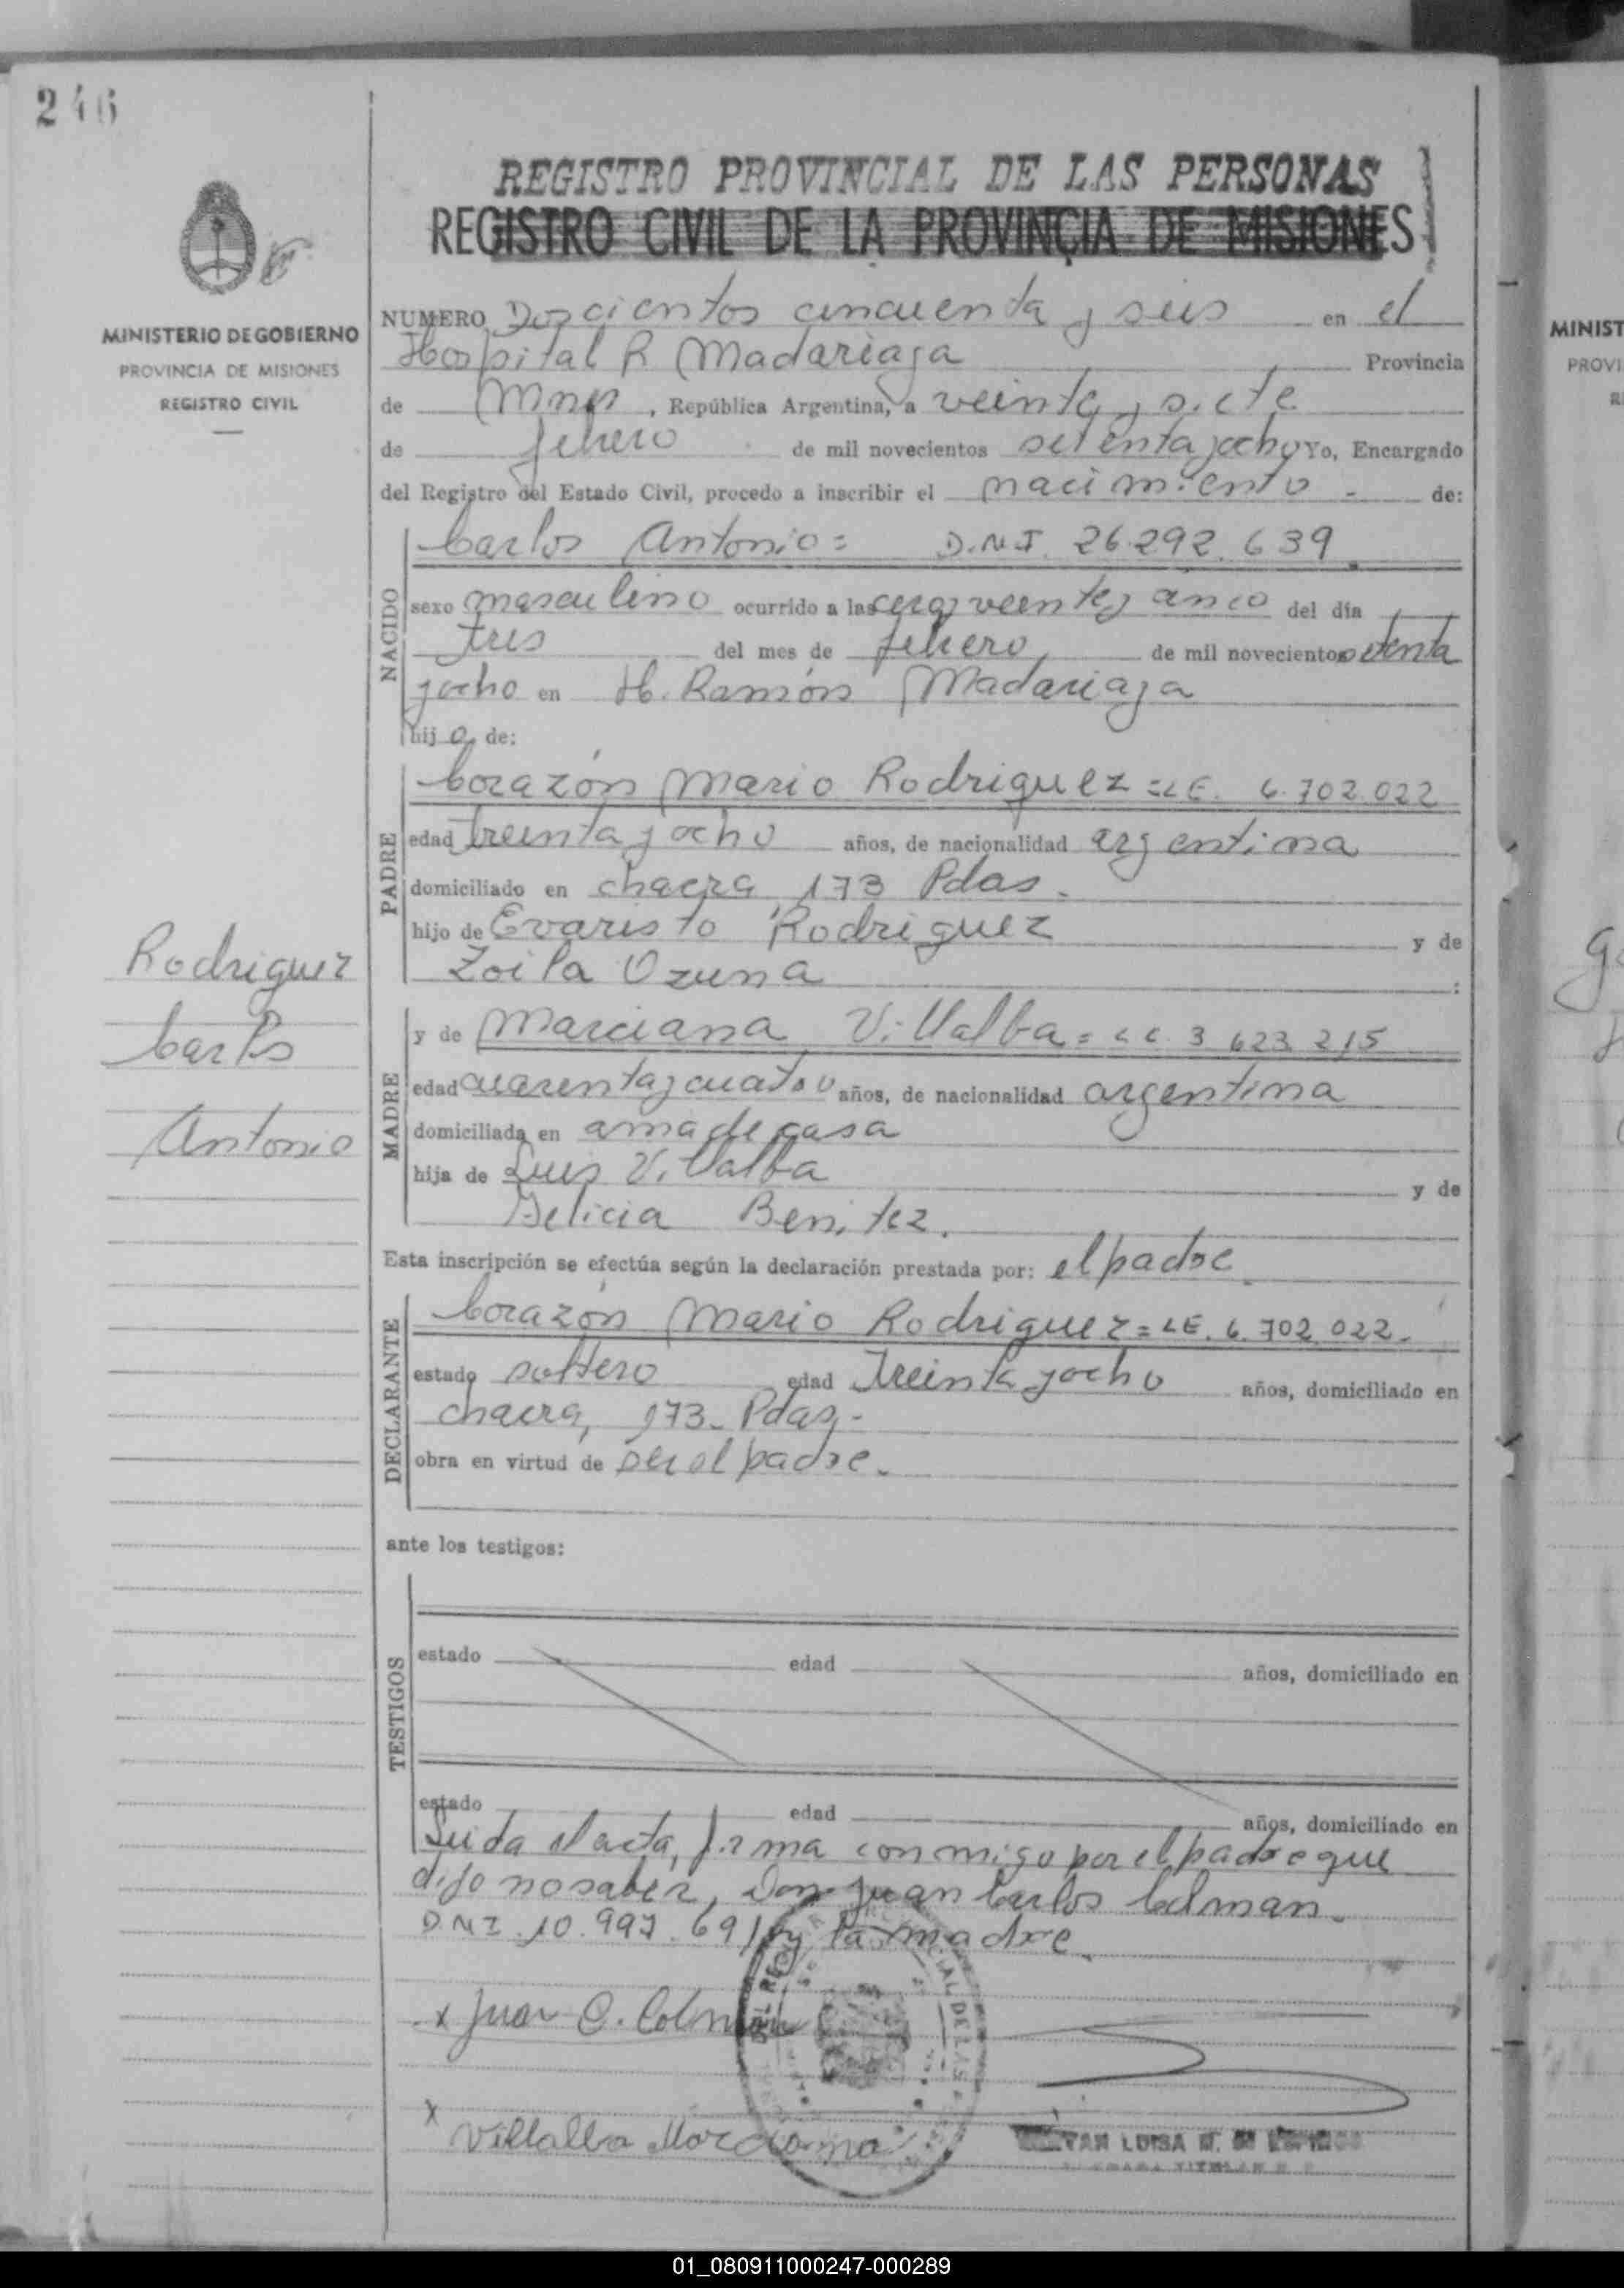 246
REGISTRO PROVINCIAL DE LAS PERSONAS
REGISTRO CIVIL DE LA PROVINCIA DE MISIONES
MINISTERIO DE GOBIERNO
PROVINCIA DE MISIONES
REGISTRO CIVIL
NUMERO Doscientos cincuenta y seis en el
Hospital R Madariaga Provincia
de Mnes, República Argentina, a veinte y siete
de febrero de mil novecientos setenta y ocho Yo, Encargado
del Registro del Estado Civil, procedo a inscribir el nacimiento - de:
NACIDO
Carlos Antonio = D.N.I. 26.292.639
sexo masculino ocurrido a las cero y veinte y cinco del día
tres del mes de febrero de mil novecientos setenta
y ocho en H. Ramón Madariaga
hijo de:
PADRE
Corazón Mario Rodriguez = LE. 6.702.022
edad treinta y ocho años, de nacionalidad argentina
domiciliado en chacra 173 Pdas.
hijo de Evaristo Rodriguez y de
Zoila Ozuna :
Rodriguez
Carlos
Antonio
MADRE
y de Marciana Villalba = LC. 3.623.215
edad cuarenta y cuatro años, de nacionalidad argentina
domiciliada en ama de casa
hija de Luis Villalba y de
Felicia Benitez.
Esta inscripción se efectúa según la declaración prestada por: el padre.
DECLARANTE
Corazón Mario Rodriguez = LE. 6.702.022.
estado soltero edad treinta y ocho años, domiciliado en
chacra, 173- Pdas,-
obra en virtud de ser el padre.
ante los testigos:
TESTIGOS
estado edad años, domiciliado en
estado edad años, domiciliado en
Leida el acta, firma conmigo por el padre que
dijo no saber, Don Juan Carlos Colman.
D.N.I. 10.997.691 y la madre.
x Juan C. Colman
x
Villalba Marciana
LUISA
MINIST
PROVI
01_080911000247-000289